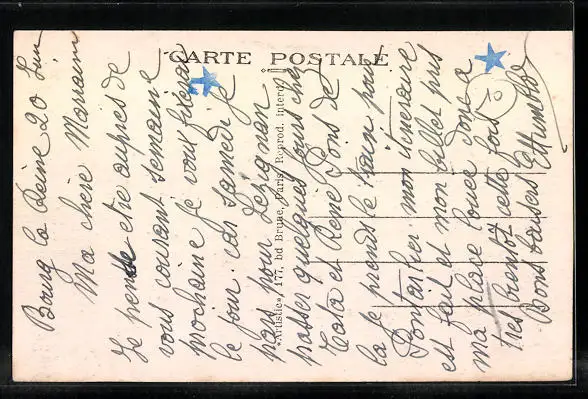 CARTE POSTALE
"Artistic", 177, bd Brune, Paris. Reprod. interd.
Bourg la Reine 20 Juin
Ma chère Marraine
Je pense etre aupres de
vous courant semaine
prochaine je vous fixerai
le jour. car samedi je
pars pour Lezignan
passer quelques jours chez
Rosa et René Pons de
la je prends le train pour
Pontarlier. mon itineraire
est fait et mon billet pris
ma place louée donc a
tres bientot cette fois
Bons baisers